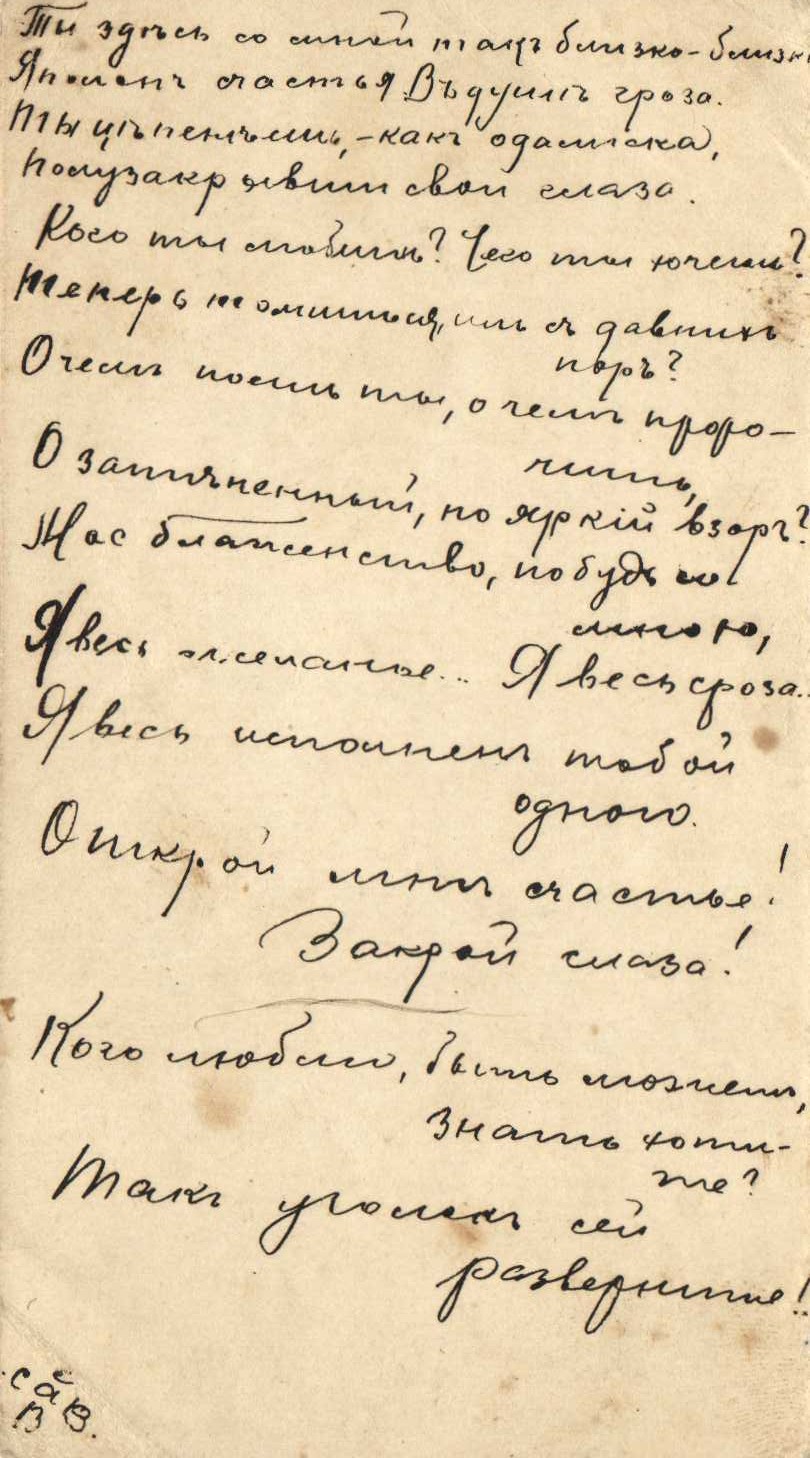 Ты здѣсь со мной такъ близко-близко
Я полонъ счастья Въ душѣ гроза.
Ты цѣпенѣешь, - какъ одалиска,
Полузакрывши свои глаза.
Кого ты любишь? Чего ты хочешь?
Теперь томишься, иль съ давнихъ
поръ?
О чемъ поешь ты, о чемъ проро-
чишь,
О затѣненный, но яркій взоръ?
Мое блаженство, побудь со
мною,
Я весь желанье... Я весь гроза..
Я весь исполненъ тобой
одною.
Открой мнѣ счастье!
Закрой глаза!
Кого люблю, быть можетъ,
знать хоти-
те?
Такъ уголокъ сей
разверните!